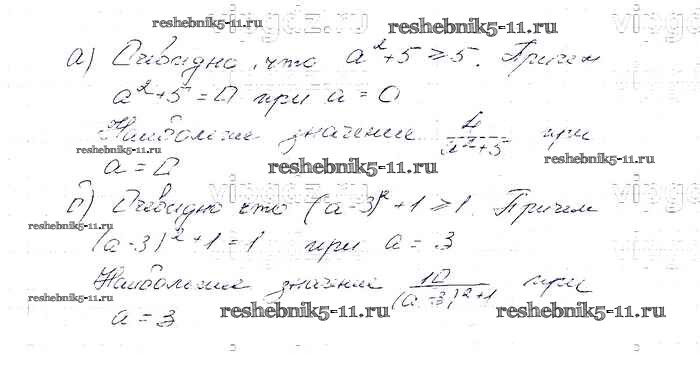 reshebnik5-11.ru
vipgdz.ru reshebnik5-11.ru vipgdz.ru
а) Очевидно, что a²+5 ≥ 5. Причем
a²+5 = 0 при a = 0
Наибольшее значение 4/(a²+5) при
reshebnik5-11.ru reshebnik5-11.ru reshebnik5-11.ru
a = 0
vipgdz.ru vipgdz.ru
б) Очевидно что (a-3)²+1 ≥ 1. Причем
reshebnik5-11.ru
(a-3)²+1 = 1 при a = 3
Наибольшее значение 10/((a-3)²+1) при
reshebnik5-11.ru reshebnik5-11.ru reshebnik5-11.ru
a = 3